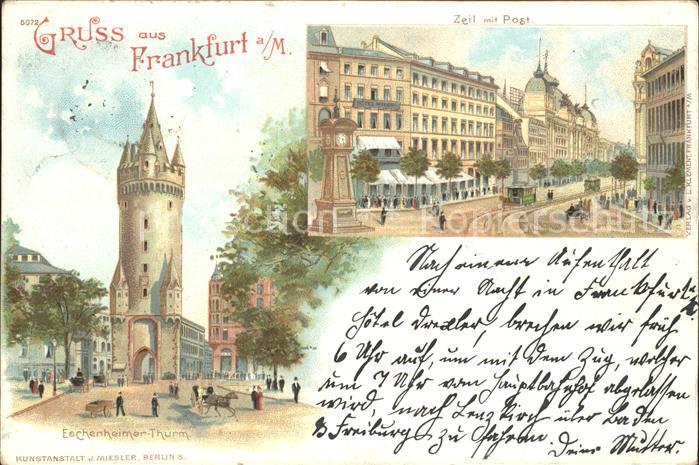 5072
GRUSS aus
Frankfurt a/M.
Zeil mit Post.
HOTEL
VERLAG v. L. KLEMENT, FRANKFURT a/M
Nach einem Aufenthalt
von einer Nacht in Frankfurt
Hôtel Drexler, brechen wir früh
6 Uhr auf, um mit dem Zug, welcher
um 7 Uhr vom Hauptbahnhof abgelassen
wird, nach Lenzkirch über Baden
Freiburg zu fahren.
Deine Mutter.
Eschenheimer-Thurm.
KUNSTANSTALT J. MIESLER, BERLIN S.